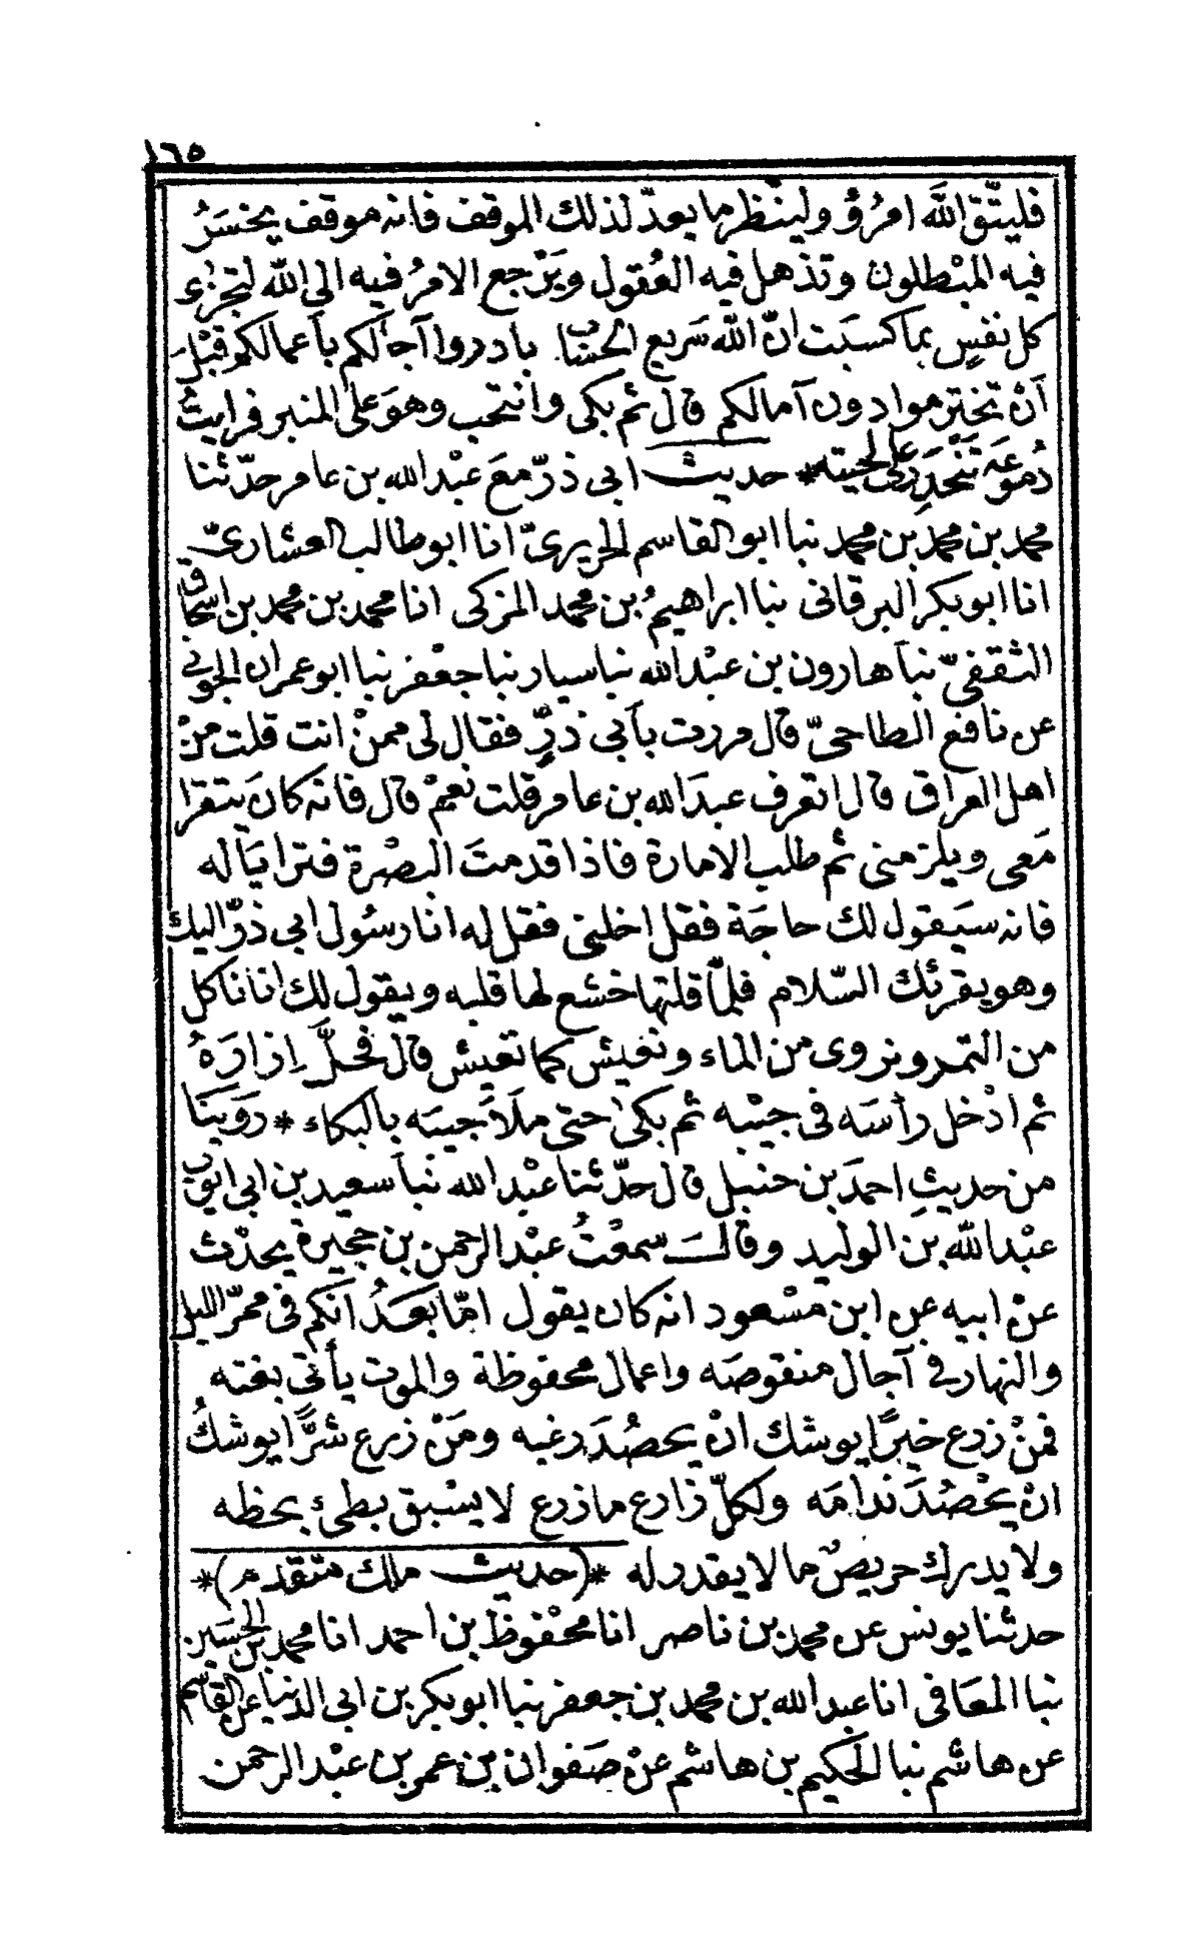 ١٦٥
فليتّق الله امرُؤ ولينظر ما يعدّ لذلك الموقف فانه موقف يخسَرُ
فيه المبْطلون وتذهل فيه العُقول ويَرْجع الامرُ فيه الى الله لتجزٰى
كل نفسٍ بما كسبَت انّ الله سَريع الحسَاب بادروا آجالكم بأعمالكم قبْلَ
اَنْ تخترموا دون آمالكم قال ثم بكى وانتحب وهوَ على المنبر فرايتُ
دُموعَه تنحَدِر على لحيته * حديث ابى ذرّ مَع عبْد الله بن عامر حدّثنا
محمد بن محمد بن محمد نبا ابو القاسم الحريرىّ انا ابو طالب العشارىّ
انا ابو بكر البرقانى نبا ابراهيمُ بن محمد المزكى انا محمد بن محمد بن اسحاق
الثقفىّ نبا هارون بن عبْد الله نبا سيار نبا جعْفر نبا ابو عمران الجَونى
عن نافع الطاحىّ قال مررت بأبى ذرٍّ فقال لى ممنْ انت قلت منْ
اهل العراق قال اتعرف عبدَ الله بن عامر قلت نعمْ قال فانه كان يتقرا
مَعى ويلزمنى ثم طلب الامارة فاذا قدمتَ البصْرة فترايَا له
فانه سَيقول لك حاجَة فقل اخلنى فقل له انا رسُول ابى ذرّ اليك
وهو يقرئك السّلام فلمّا قلتها خشع لها قلبه ويقول لك انا ناكل
من التمر ونروى من الماء ونعيش كما تعيش قال فحلَّ اِزارَهُ
ثم ادْخل رأسَه فى جيْبه ثم بكى حتى ملَأ جيبَه بالبكاء * روَينَا
من حديثِ احمدَ بن حنبل قال حدّثنا عبْد الله نبا سعيد بن ابى ايوب
عبْد الله بن الوليد وقال سمعْتُ عبْد الرحمن بن حجيرة يحدّث
عنْ ابيه عن ابن مسْعود انه كان يقول امّا بَعدُ انكم فى ممرّ الليل
والنهار فى آجال منقوصَه واعمال محفوظة والموت يأتى بغته
فمنْ زرع خيرًا يوشك انْ يحصُدَ رغبه ومَنْ زرع شرًّا يوشكُ
انْ يحْصُدَ ندامَه ولكلّ زارع ما زرع لا يسْبق بطئ بحظه
ولا يدرك حريصٌ ما لا يقدر له *(حديث ملك متقدم)*
حدثنا يونس عن محمد بن ناصر انا محْفوظ بن احمد انا محمد بن الحسَين
نبا المعَافى انا عبد الله بن محمد بن جعفر نبا ابو بكر بن ابى الدنيا عن القاسم
عن هاشم نبا الحَكيم بن هاشم عنْ صَفوان بن عمر بن عبْد الرحمن